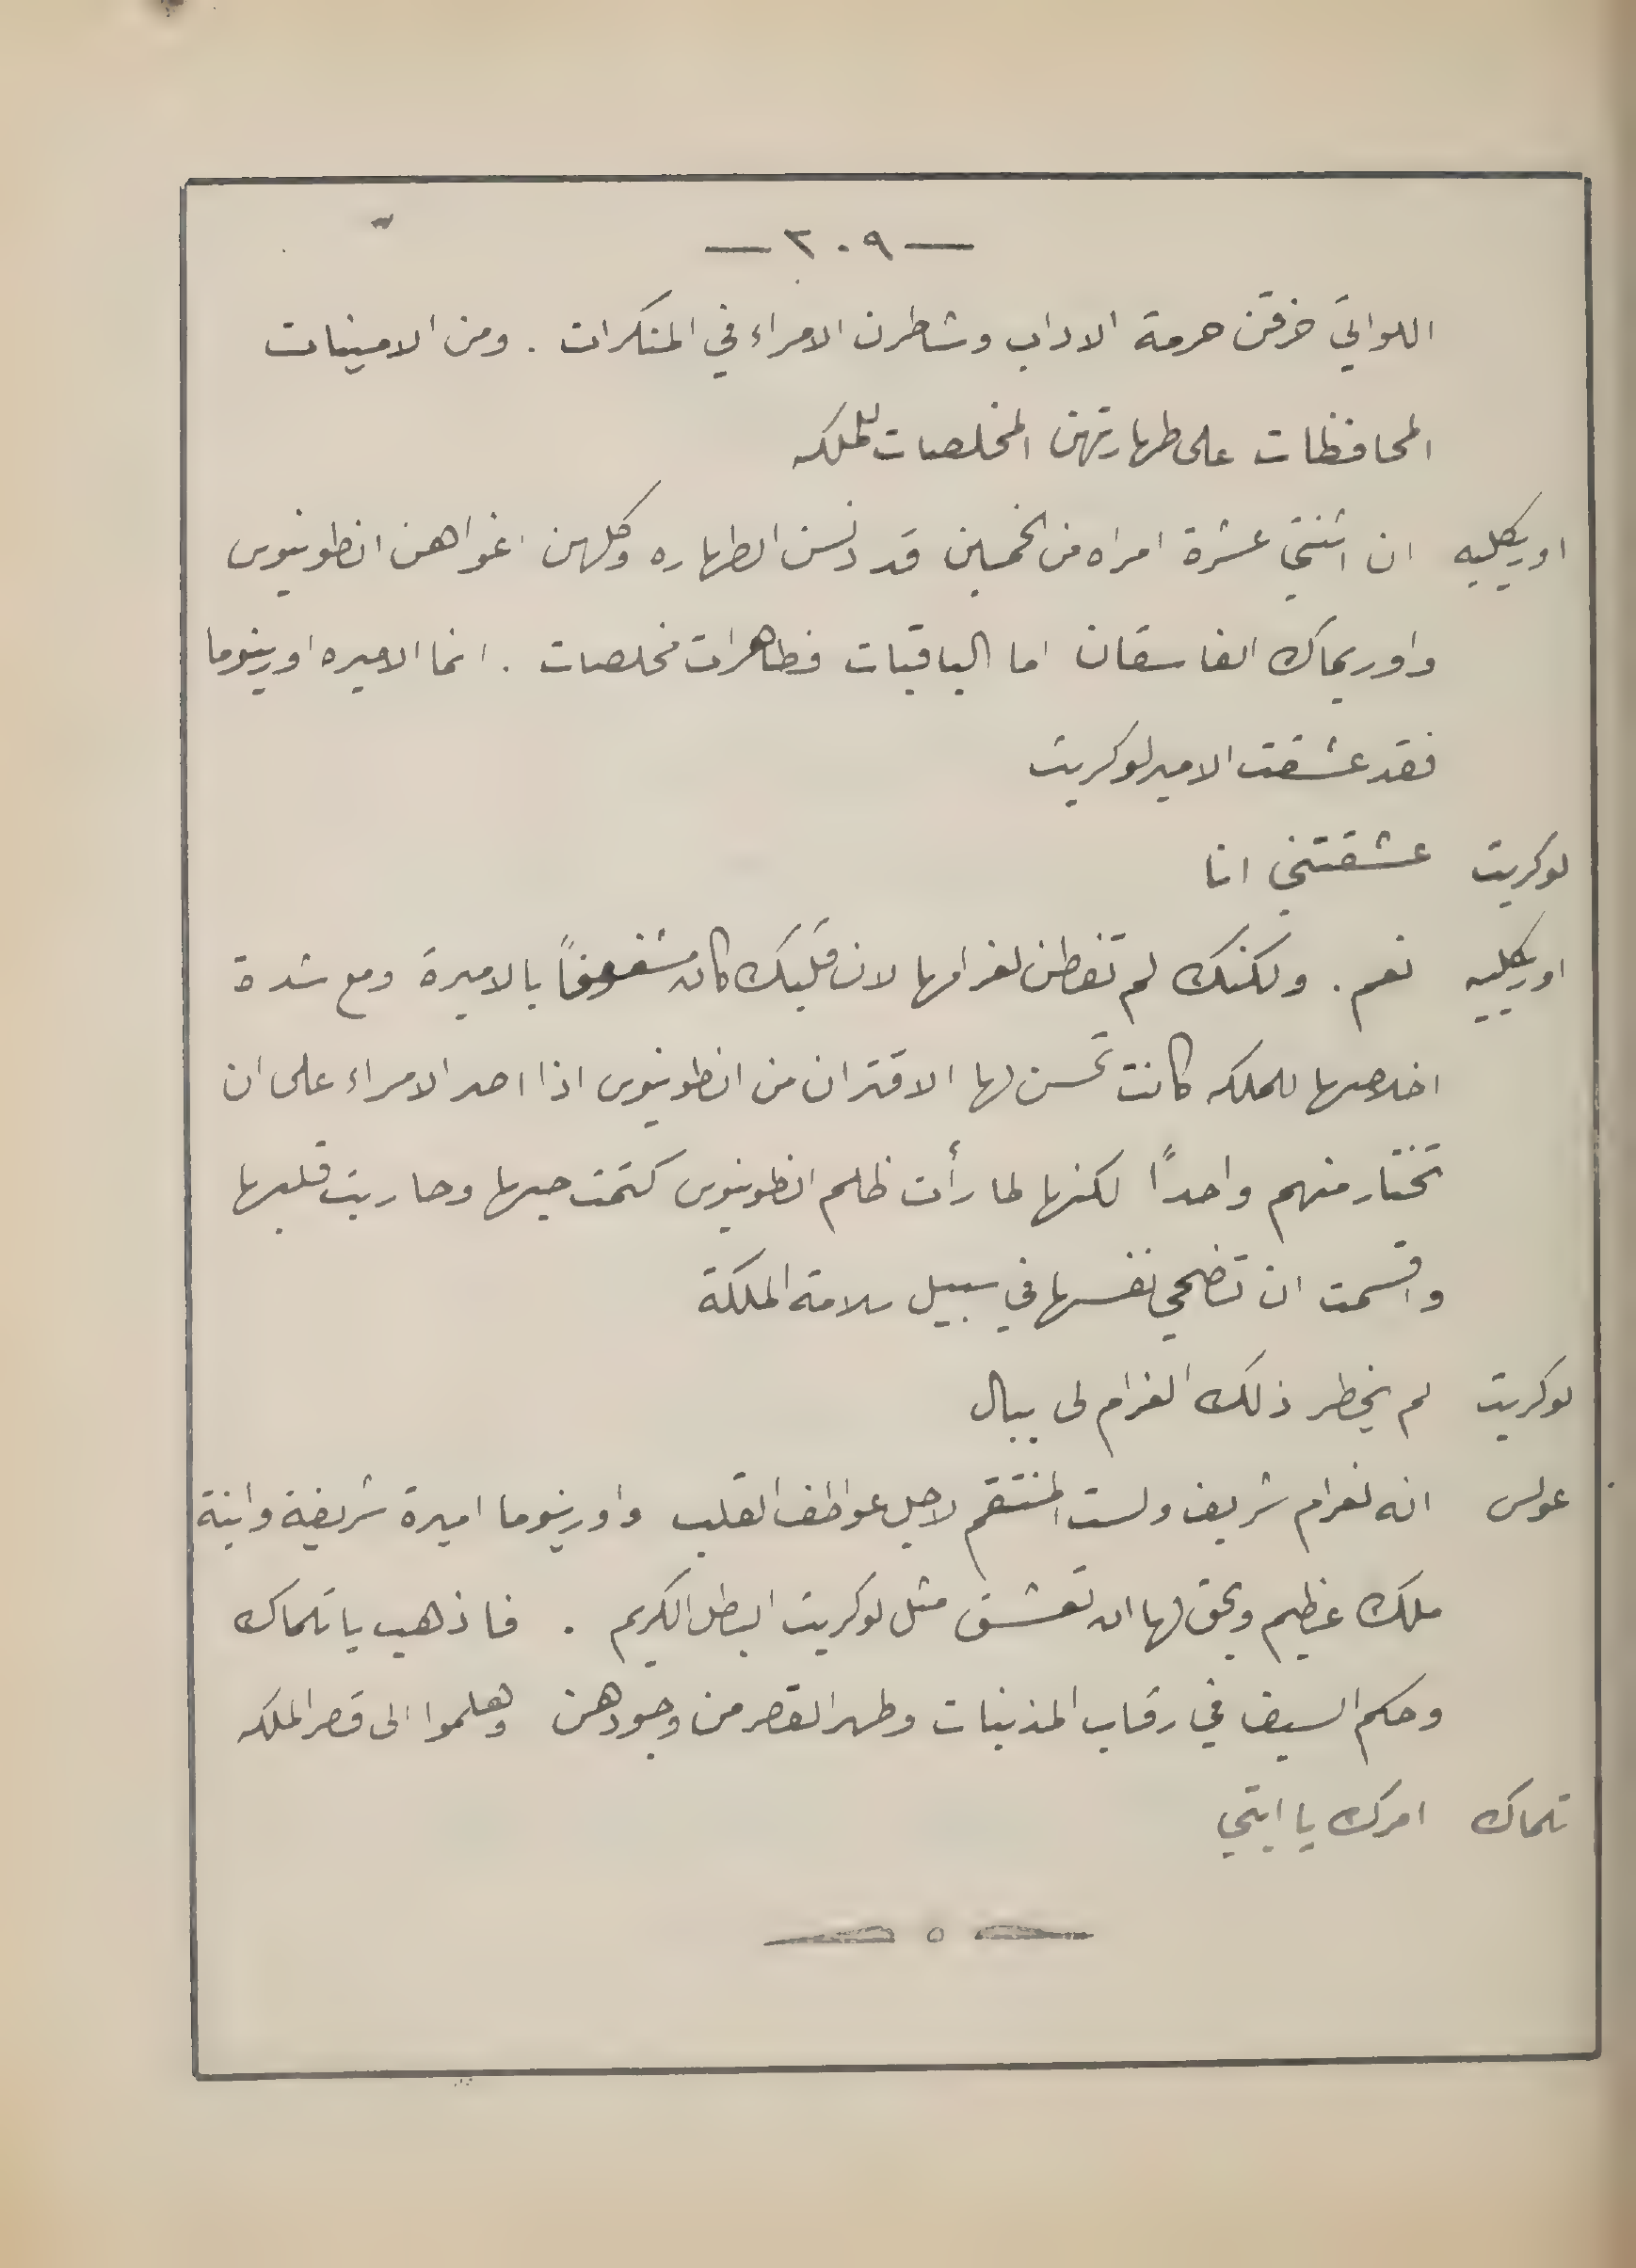 — ٢٠٩ —
اللواتي خرقن حرمة الاداب وشاطرن الامراء في المنكرات . ومن الامينات
المحافظات على طهارتهن المخلصات للملكه
اوريكليه ان اثنتي عشرة امراه من الخمسين قد دنسن الطهاره وكلهن اغواهن انطونيوس
واوريماك الفاسقان اما الباقيات فطاهرات مخلصات . انما الاميره اورينوما
فقد عشقت الامير لوكريت
لوكريت عشقتني انا
اوريكلييه نعم . ولكنك لم تفطن لغرامها لان قلبك كان مشغوفاً بالاميرة ومع شدة
اخلاصها للملكه كانت تحسن لها الاقتران من انطونيوس اذا اصر الامراء على ان
تختار منهم واحداً لكنها لما رأت ظلم انطونيوس كتمت حبها وحاربت قلبها
واقسمت ان تضحي نفسها في سبيل سلامة الملكة
لوكريت لم يخطر ذلك الغرام لى ببال
عولس انه لغرام شريف ولست المنتقم لاجل عواطف القلب واورينوما اميرة شريفة وابنة
ملك عظيم ويحق لها ان تعشق مثل لوكريت البطل الكريم . فاذهب يا تلماك
وحكم السيف في رقاب المذنبات وطهر القصر من وجودهن وهلموا الى قصر الملكه
تلماك امرك يا ابتي